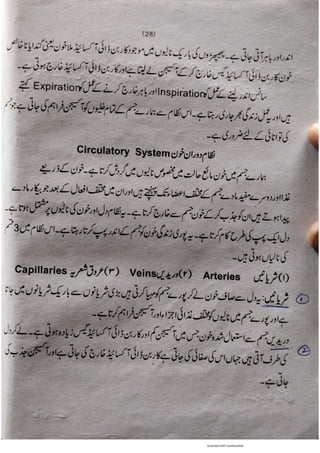 (28)
اندر اور باہر آتی جاتی ہے۔ پھیپھڑوں کی باریک نالیوں میں موجود کاربن ڈائی آکسائیڈ ملا خون یعنی گندا یا نا خالص
خون کاربن ڈائی آکسائیڈ گیس خارج کر کے آکسیجن لے لیتا ہے اور کاربن ڈائی آکسائیڈ خارج ہوتی ہے۔
سانس اندر لینے کے عمل کو Inspiration اور باہر خارج کرنے کے عمل کو Expiration کہتے
ہیں اور یہ عمل زندگی بھر جاری رہتا ہے۔ اس نظام سے ہمارے جسم کے تمام خلیوں کو آکسیجن فراہم کی جاتی ہے جو جسم
کی توانائی کے لئے ضروری ہے۔
نظام دوران خون Circulatory System
ہمارے جسم میں خون مائع حالت میں مخصوص نالیوں میں گردش کرتا ہے۔ خون کے ذریعے
غذا اور دوسرے مفید مادے جسم کے مختلف اعضاء تک پہنچتے ہیں اور ان میں مختلف افعال کے بعد جو بیکار مادے
پیدا ہوتے ہیں ان کو جذب کر کے خون جسم سے خارج کرتا ہے۔ یہ نظام دل اور خون کی نالیوں پر مشتمل ہوتا ہے۔
دل ایک پمپ کی طرح کام کرتا ہے۔ یہ پوری زندگی خون کو جسم کے اندر پمپ کرتا رہتا ہے۔ اس نظام میں 3 قسم
کی نالیاں ہوتی ہیں۔
(۱) شریانیں Arteries (۲) وریدیں Veins (۳) عروق شعریہ Capillaries
① شریانیں: یہ دل سے صاف خون لے کر پورے جسم کو مہیا کرتی ہیں بڑی شریانوں سے باریک شریانوں میں جاتا
ہے اور پورے جسم میں نالیوں کو مختلف غذائی اجزاء اور آکسیجن فراہم کرتا ہے۔
② وریدیں جسم سے استعمال شدہ خون جس میں آکسیجن کم اور کاربن ڈائی آکسائیڈ گیس زیادہ ہوتی ہے۔ لے کر دل
کی طرف آتی ہیں جہاں اس کی صفائی کی جاتی ہے کاربن ڈائی آکسائیڈ خارج کی جاتی ہے اور آکسیجن جذب کی
جاتی ہے۔
Scanned with CamScanner